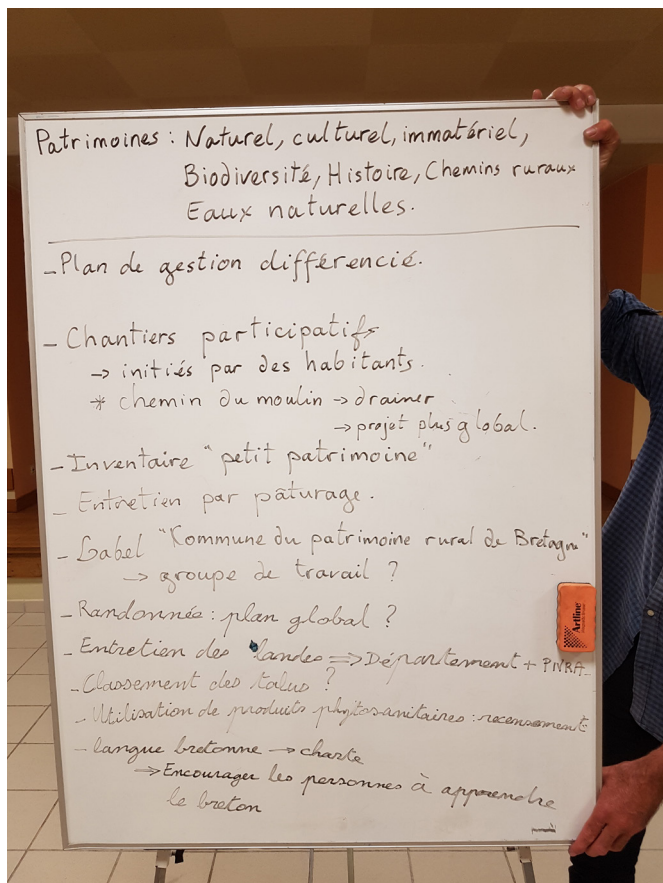 Patrimoines : Naturel, culturel, immatériel,
Biodiversité, Histoire, Chemins ruraux
Eaux naturelles.
- Plan de gestion différencié.
- Chantiers participatifs
→ initiés par des habitants.
* chemin du moulin → drainer
→ projet plus global.
- Inventaire "petit patrimoine"
- Entretien par pâturage.
- Label "Kommune du patrimoine rural de Bretagne"
→ groupe de travail ?
- Randonnée : plan global ?
- Entretien des landes ⇒ Département + PNRA
- Classement des talus ?
- Utilisation de produits phytosanitaires : recensement
- langue bretonne → charte
⇒ Encourager les personnes à apprendre
le breton
Artline